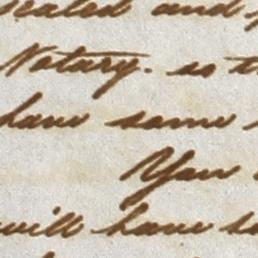 sealed and
Notary. so
have same
You
will have